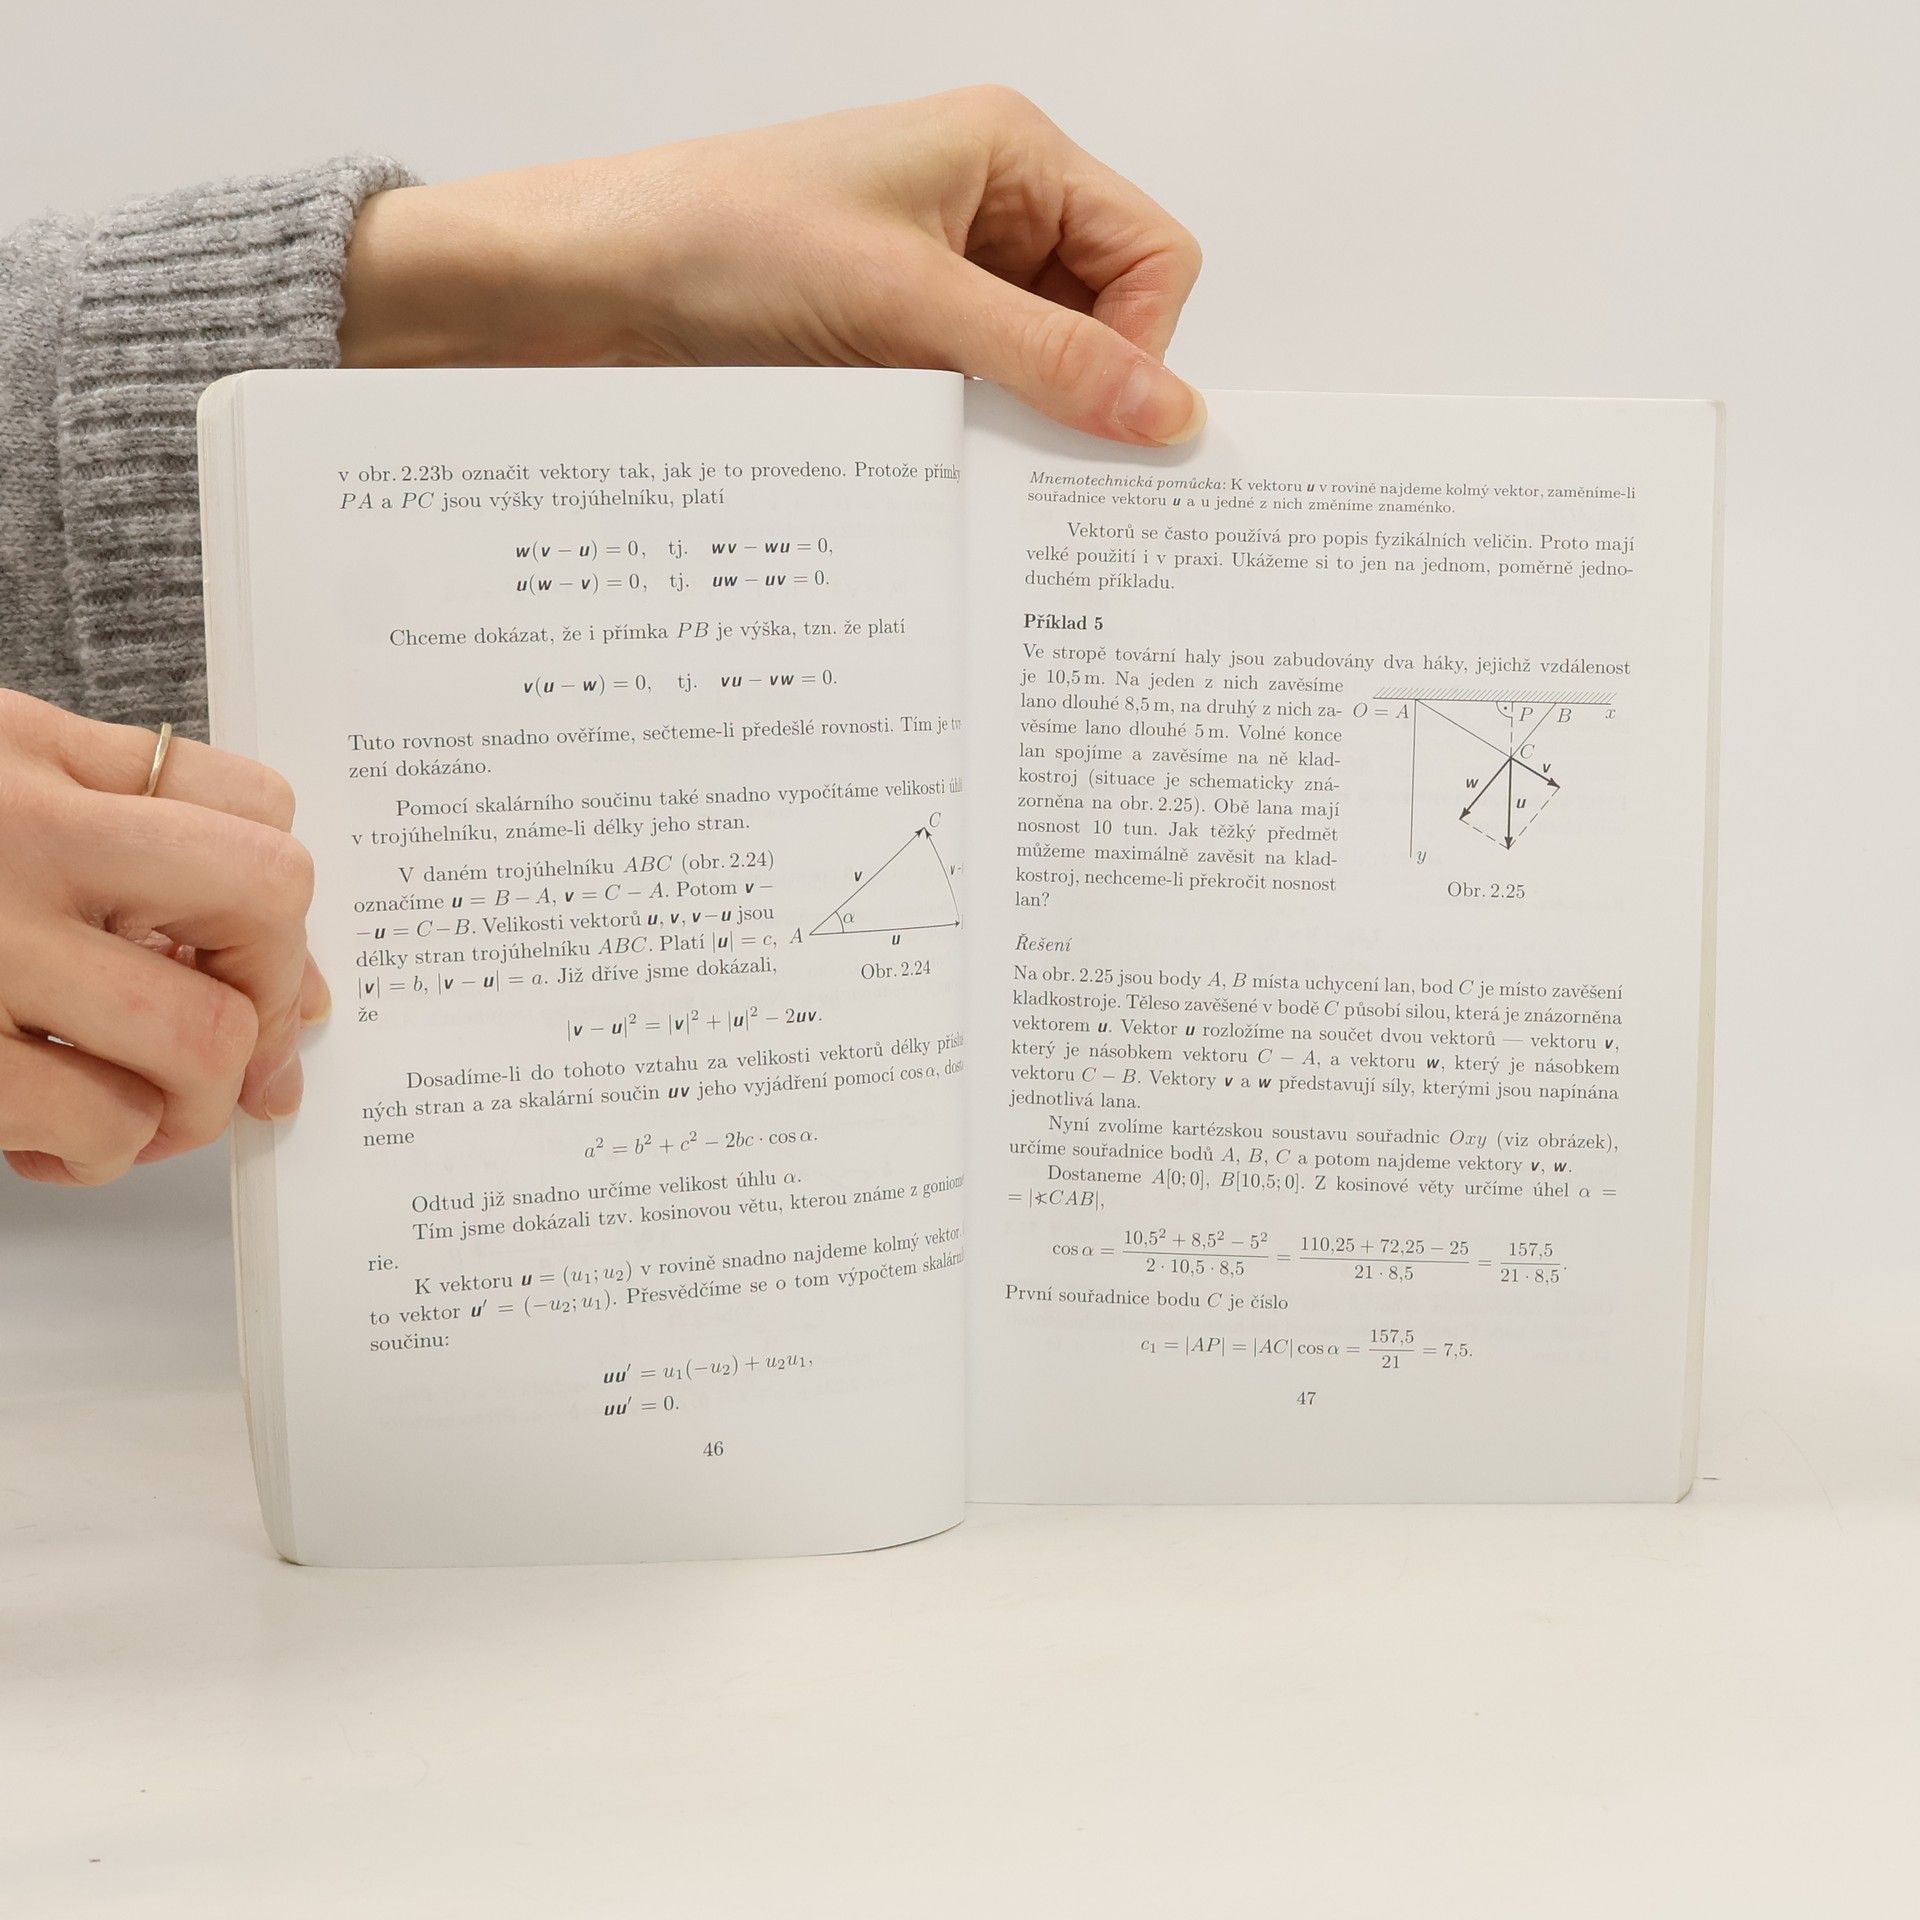 v obr. 2.23b označit vektory tak, jak je to provedeno. Protože přímky
PA a PC jsou výšky trojúhelníku, platí
w(v − u) = 0, tj. wv − wu = 0,
u(w − v) = 0, tj. uw − uv = 0.
Chceme dokázat, že i přímka PB je výška, tzn. že platí
v(u − w) = 0, tj. vu − vw = 0.
Tuto rovnost snadno ověříme, sečteme-li předešlé rovnosti. Tím je
zení dokázáno.
Pomocí skalárního součinu také snadno vypočítáme velikosti
v trojúhelníku, známe-li délky jeho stran.
V daném trojúhelníku ABC (obr. 2.24)
označíme u = B − A, v = C − A. Potom v −
− u = C − B. Velikosti vektorů u, v, v − u jsou
délky stran trojúhelníku ABC. Platí |u| = c,
|v| = b, |v − u| = a. Již dříve jsme dokázali,
že
C
v
v-
α
A
u
Obr. 2.24
|v − u|² = |v|² + |u|² − 2uv.
Dosadíme-li do tohoto vztahu za velikosti vektorů délky
ných stran a za skalární součin uv jeho vyjádření pomocí cos α,
neme
a² = b² + c² − 2bc · cos α.
Odtud již snadno určíme velikost úhlu α.
Tím jsme dokázali tzv. kosinovou větu, kterou známe z
rie.
K vektoru u = (u₁; u₂) v rovině snadno najdeme kolmý vektor.
to vektor u′ = (−u₂; u₁). Přesvědčíme se o tom výpočtem
součinu:
uu′ = u₁(−u₂) + u₂u₁,
uu′ = 0.
46
Mnemotechnická pomůcka: K vektoru u v rovině najdeme kolmý vektor, zaměníme-li
souřadnice vektoru u a u jedné z nich změníme znaménko.
Vektorů se často používá pro popis fyzikálních veličin. Proto mají
velké použití i v praxi. Ukážeme si to jen na jednom, poměrně jedno-
duchém příkladu.
Příklad 5
Ve stropě tovární haly jsou zabudovány dva háky, jejichž vzdálenost
je 10,5 m. Na jeden z nich zavěsíme
lano dlouhé 8,5 m, na druhý z nich za-
věsíme lano dlouhé 5 m. Volné konce
lan spojíme a zavěsíme na ně klad-
kostroj (situace je schematicky zná-
zorněna na obr. 2.25). Obě lana mají
nosnost 10 tun. Jak těžký předmět
můžeme maximálně zavěsit na klad-
kostroj, nechceme-li překročit nosnost
lan?
O = A
P
B
x
C
v
w
u
y
Obr. 2.25
Řešení
Na obr. 2.25 jsou body A, B místa uchycení lan, bod C je místo zavěšení
kladkostroje. Těleso zavěšené v bodě C působí silou, která je znázorněna
vektorem u. Vektor u rozložíme na součet dvou vektorů — vektoru v,
který je násobkem vektoru C − A, a vektoru w, který je násobkem
vektoru C − B. Vektory v a w představují síly, kterými jsou napínána
jednotlivá lana.
Nyní zvolíme kartézskou soustavu souřadnic Oxy (viz obrázek),
určíme souřadnice bodů A, B, C a potom najdeme vektory v, w.
Dostaneme A[0; 0], B[10,5; 0]. Z kosinové věty určíme úhel α =
= |∢CAB|,
cos α = (10,5² + 8,5² − 5²)/(2 · 10,5 · 8,5) = (110,25 + 72,25 − 25)/(21 · 8,5) = 157,5/(21 · 8,5).
První souřadnice bodu C je číslo
c₁ = |AP| = |AC| cos α = 157,5/21 = 7,5.
47